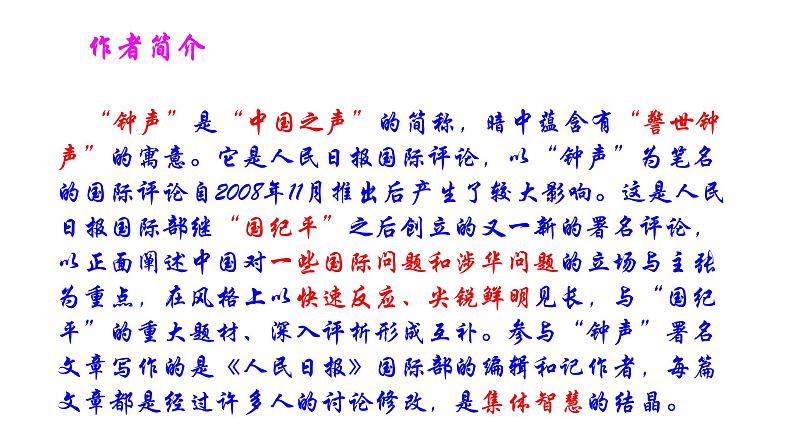 作者简介
“钟声”是“中国之声”的简称，暗中蕴含有“警世钟
声”的寓意。它是人民日报国际评论，以“钟声”为笔名
的国际评论自2008年11月推出后产生了较大影响。这是人民
日报国际部继“国纪平”之后创立的又一新的署名评论，
以正面阐述中国对一些国际问题和涉华问题的立场与主张
为重点，在风格上以快速反应、尖锐鲜明见长，与“国纪
平”的重大题材、深入评析形成互补。参与“钟声”署名
文章写作的是《人民日报》国际部的编辑和记作者，每篇
文章都是经过许多人的讨论修改，是集体智慧的结晶。